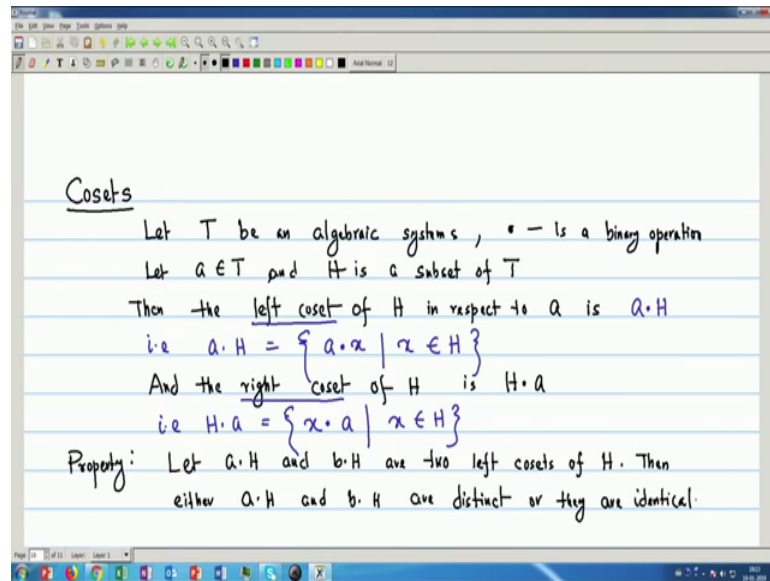 Journal
File Edit View Page Tools Options Help
Arial Normal 12
Cosets
Let T be an algebraic systems, • – is a binary operation
Let a ∈ T and H is a subset of T
Then the left coset of H in respect to a is a•H
i.e a.H = { a•x | x ∈ H }
And the right coset of H is H•a
i.e H.a = { x•a | x ∈ H }
Property: Let a.H and b.H are two left cosets of H. Then
either a.H and b.H are distinct or they are identical.
Page 10 of 11 Layer: Layer 1